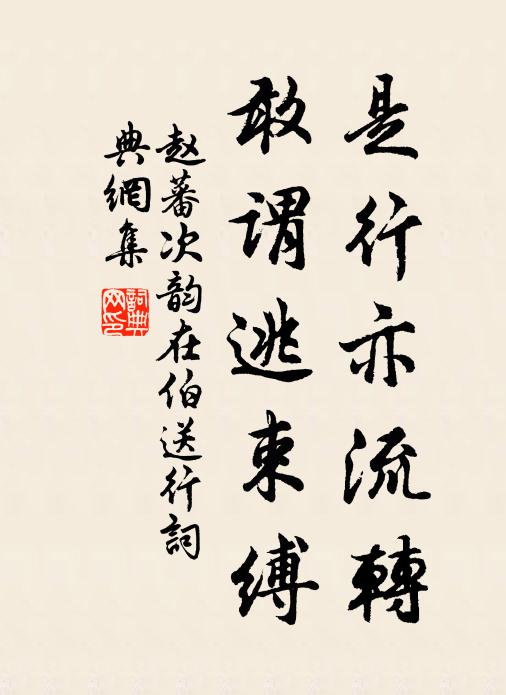 是行亦流轉
敢謂逃束缚
赵蕃次韵在伯送行詞
典網集
詞典
网印